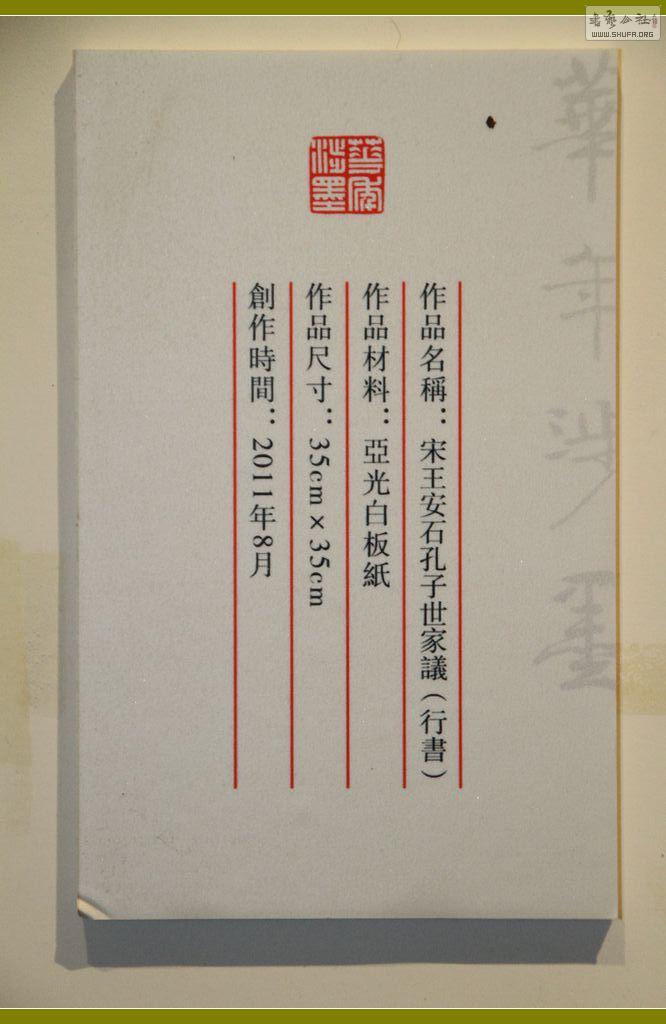 華年涉墨
作品名稱：宋王安石孔子世家議（行書）
作品材料：亞光白板紙
作品尺寸：35cm×35cm
創作時間：2011年8月
華年涉墨
WWW.SHUFA.ORG